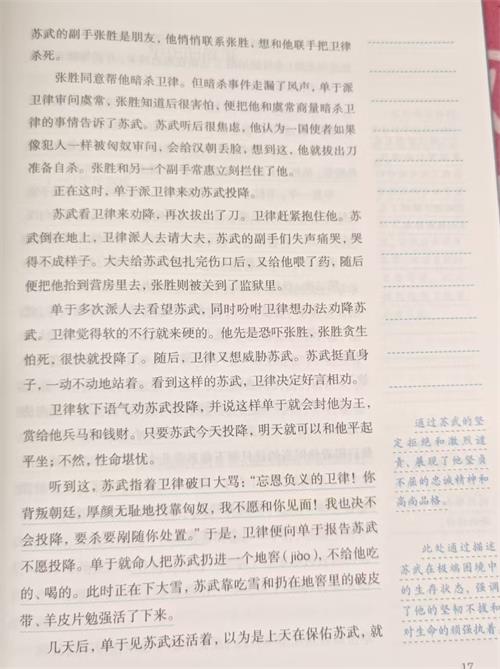 苏武的副手张胜是朋友，他悄悄联系张胜，想和他联手把卫律
杀死。
张胜同意帮他暗杀卫律。但暗杀事件走漏了风声，单于派
卫律审问虞常，张胜知道后很害怕，便把他和虞常商量暗杀卫
律的事情告诉了苏武。苏武听后很焦虑，他认为一国使者如果
像犯人一样被匈奴审问，会给汉朝丢脸，想到这，他就拔出刀
准备自杀。张胜和另一个副手常惠立刻拦住了他。
正在这时，单于派卫律来劝苏武投降。
苏武看卫律来劝降，再次拔出了刀。卫律赶紧抱住他。苏
武倒在地上，卫律派人去请大夫，苏武的副手们失声痛哭，哭
得不成样子。大夫给苏武包扎完伤口后，又给他喂了药，随后
便把他抬到营房里去，张胜则被关到了监狱里。
单于多次派人去看望苏武，同时吩咐卫律想办法劝降苏
武。卫律觉得软的不行就来硬的。他先是恐吓张胜，张胜贪生
怕死，很快就投降了。随后，卫律又想威胁苏武。苏武挺直身
子，一动不动地站着。看到这样的苏武，卫律决定好言相劝。
卫律软下语气劝苏武投降，并说这样单于就会封他为王，
赏给他兵马和钱财。只要苏武今天投降，明天就可以和他平起
平坐；不然，性命堪忧。
听到这，苏武指着卫律破口大骂：“忘恩负义的卫律！你
背叛朝廷，厚颜无耻地投靠匈奴，我不愿和你见面！我也决不
会投降，要杀要剐随你处置。”于是，卫律便向单于报告苏武
不愿投降。单于就命人把苏武扔进一个地窖（jiào），不给他吃
的、喝的。此时正在下大雪，苏武靠吃雪和扔在地窖里的破皮
带、羊皮片勉强活了下来。
几天后，单于见苏武还活着，以为是上天在保佑苏武，就
通过苏武的坚
定拒绝和激烈谴
责，展现了他坚贞
不屈的忠诚精神和
高尚品格。
此处通过描述
苏武在极端困境中
的生存状态，强调
了他的坚韧不拔和
对生命的顽强执着
17